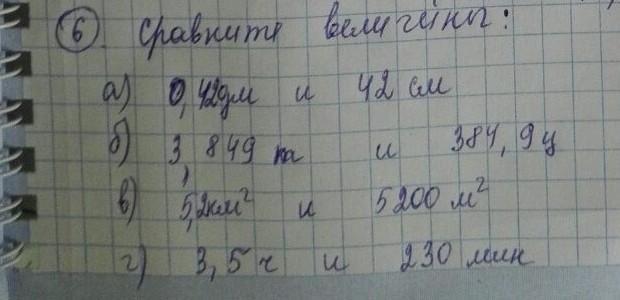 6. Сравните величины:
а) 0,42дм и 42 см
б) 3,849 га и 384,9ц
в) 5,2км² и 5200 м²
г) 3,5ч и 230 мин